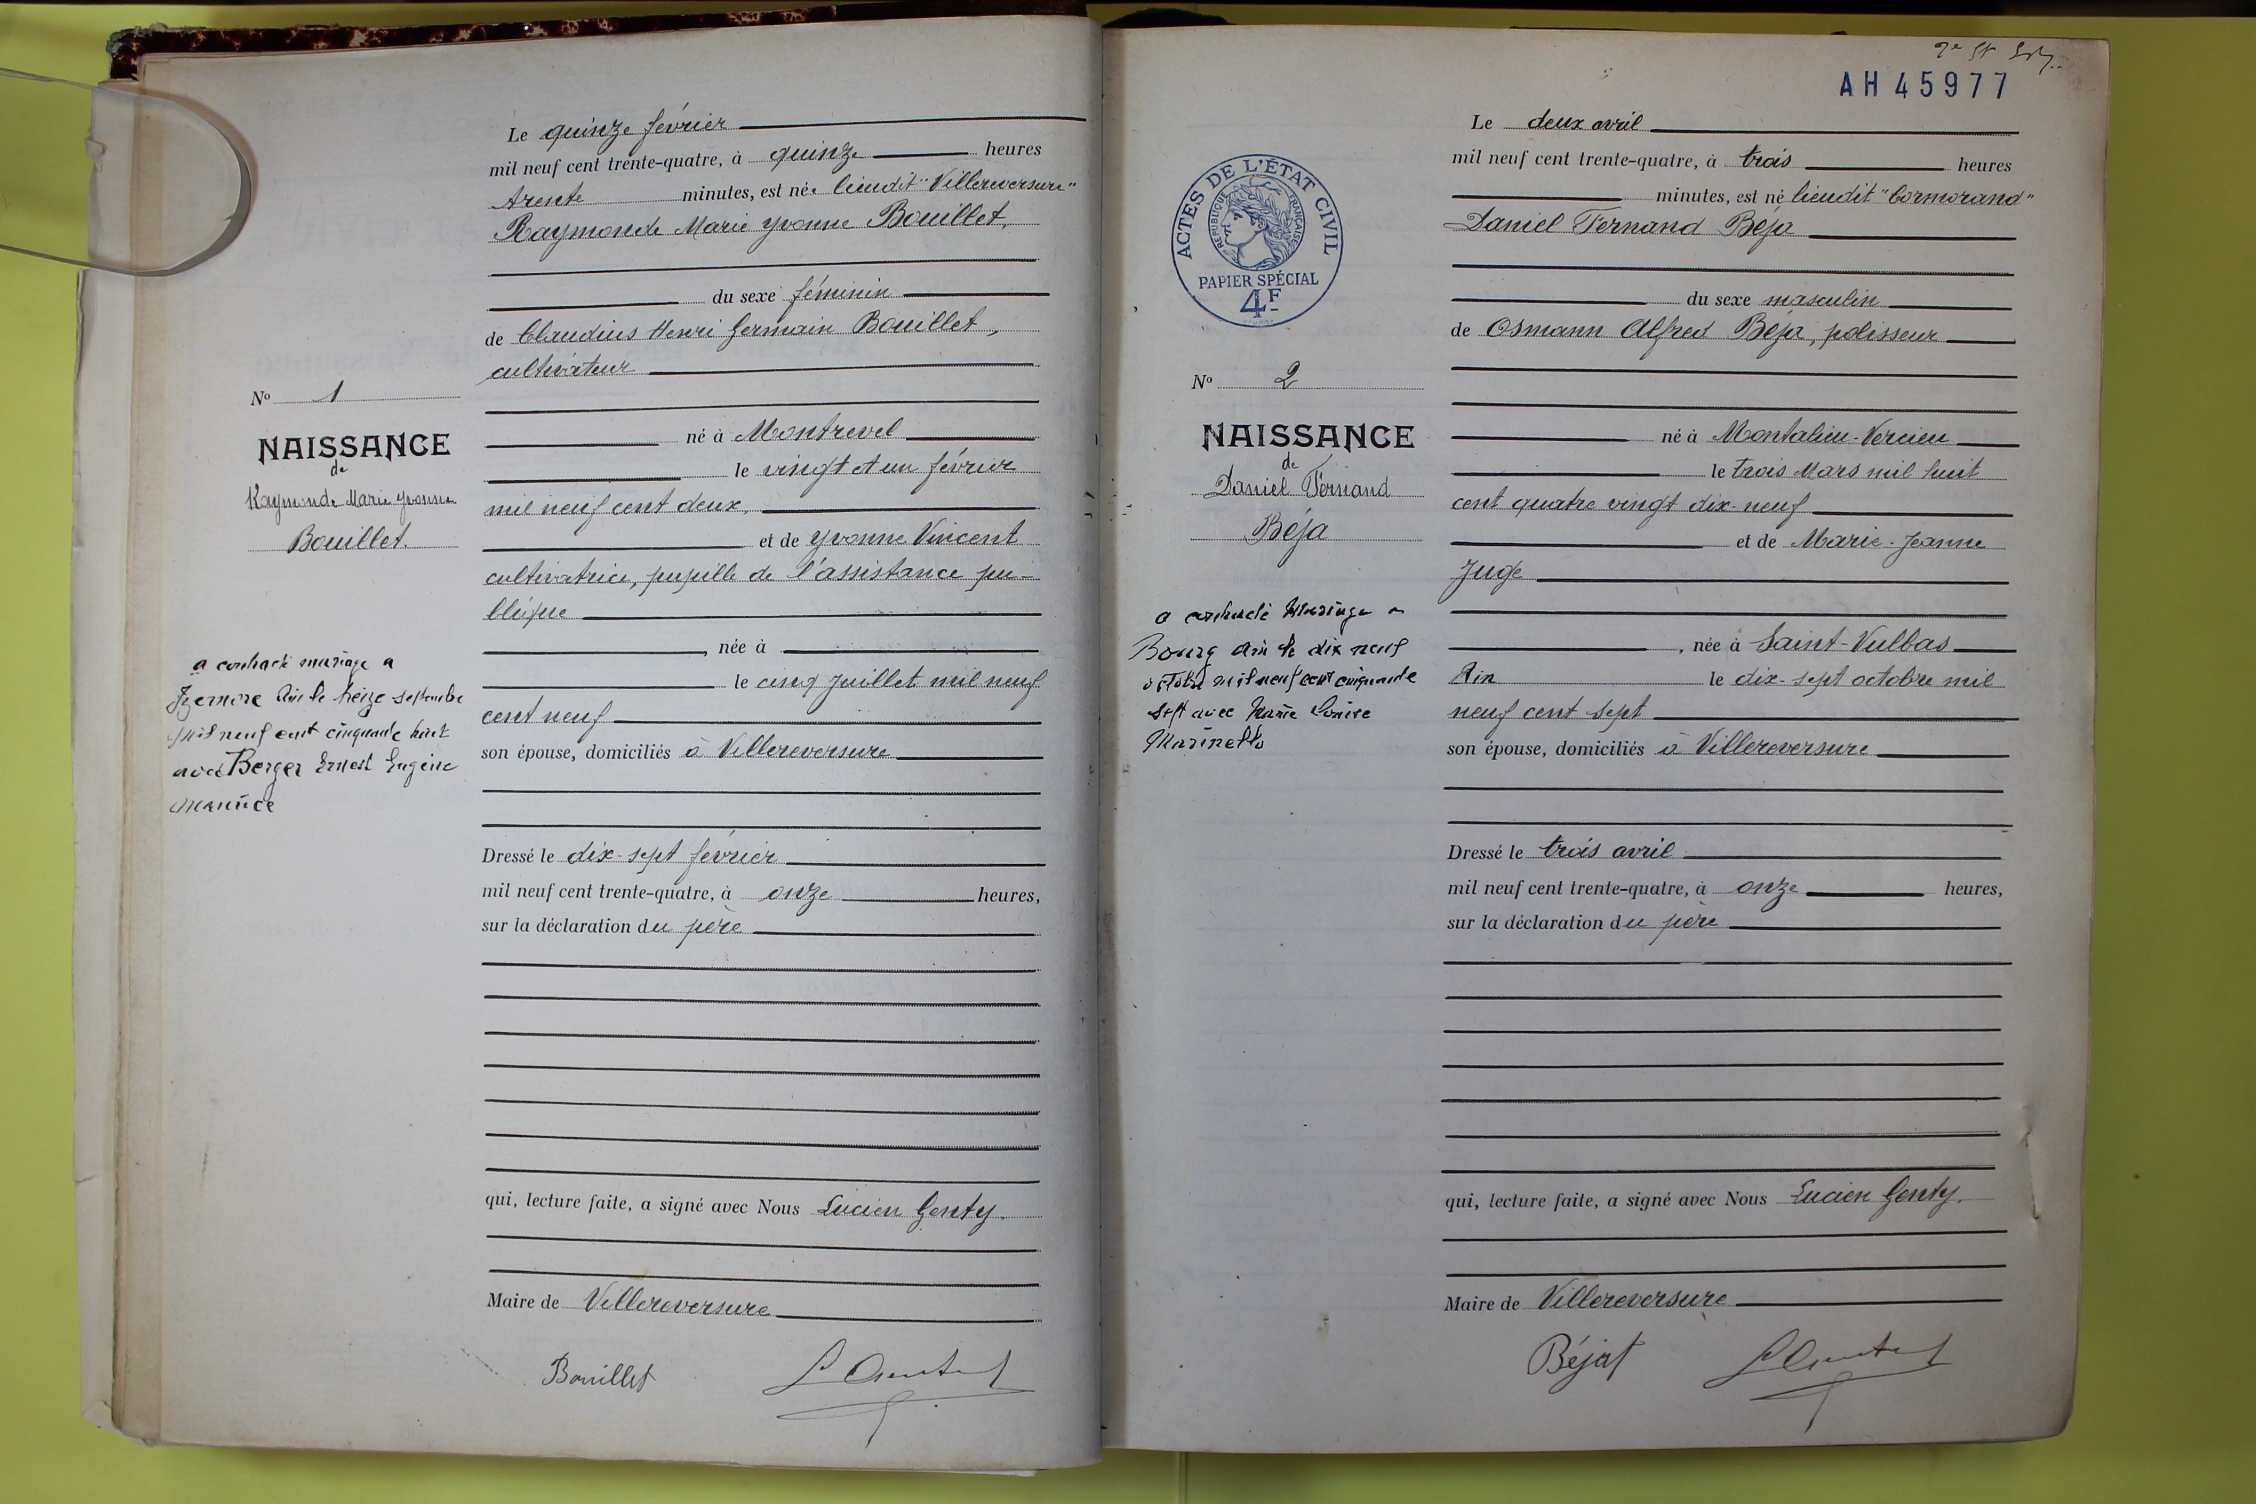 Le quinze février
mil neuf cent trente-quatre, à quinze heures
trente minutes, est née lieudit "Villereversure"
Raymonde Marie Yvonne Bouillet,
du sexe féminin
de Claudius Henri Germain Bouillet,
cultivateur
né à Montrevel
le vingt et un février
mil neuf cent deux,
et de Yvonne Vincent
cultivatrice, pupille de l'assistance pu-
blique
, née à
le cinq juillet mil neuf
cent neuf
son épouse, domiciliés à Villereversure
Dressé le dix-sept février
mil neuf cent trente-quatre, à onze heures,
sur la déclaration du père
qui, lecture faite, a signé avec Nous Lucien Genty.
Maire de Villereversure
Bouillet
No 1
NAISSANCE
de
Raymonde Marie Yvonne
Bouillet.
a contracté mariage a
Izernore Ain le treize septembre
mil neuf cent cinquante huit
avec Berger Ernest Eugène
Maurice
AH 45977
ACTES DE L'ÉTAT CIVIL
RÉPUBLIQUE FRANÇAISE
PAPIER SPÉCIAL
4F
Le deux avril
mil neuf cent trente-quatre, à trois heures
minutes, est né lieudit "Cormorand"
Daniel Fernand Béja
du sexe masculin
de Osmann Alfred Béja, polisseur
né à Montalieu-Vercieu
le trois Mars mil huit
cent quatre vingt dix-neuf
et de Marie-Jeanne
Juge
, née à Saint-Vulbas
Ain le dix-sept octobre mil
neuf cent sept
son épouse, domiciliés à Villereversure
Dressé le trois avril
mil neuf cent trente-quatre, à onze heures,
sur la déclaration du père
qui, lecture faite, a signé avec Nous Lucien Genty.
Maire de Villereversure
Béjat
No 2
NAISSANCE
de
Daniel Fernand
Béja
a contracté Mariage a
Bourg Ain le dix neuf
octobre mil neuf cent cinquante
sept avec Marie Louise